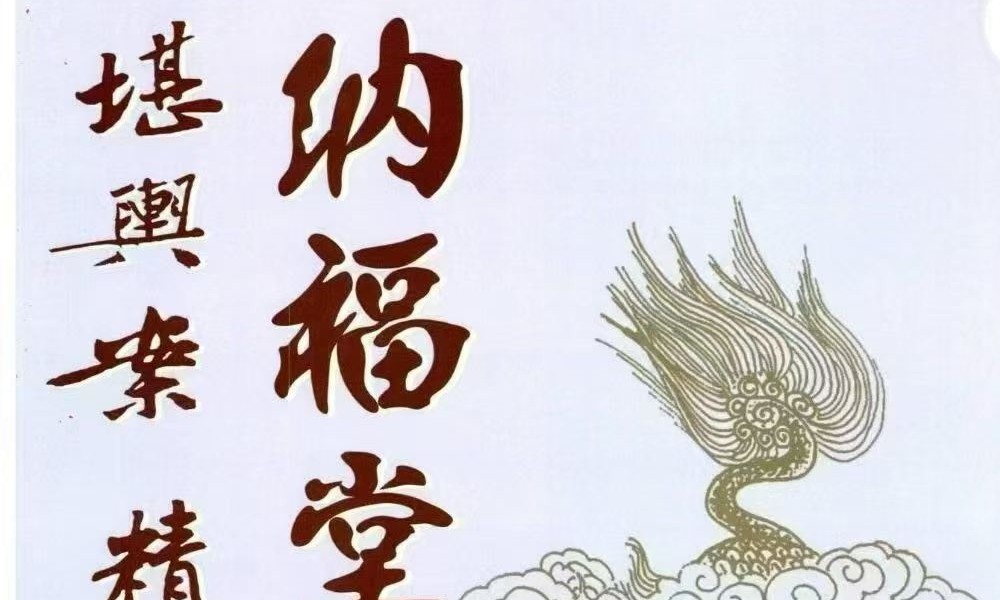 纳福堂
堪舆案精